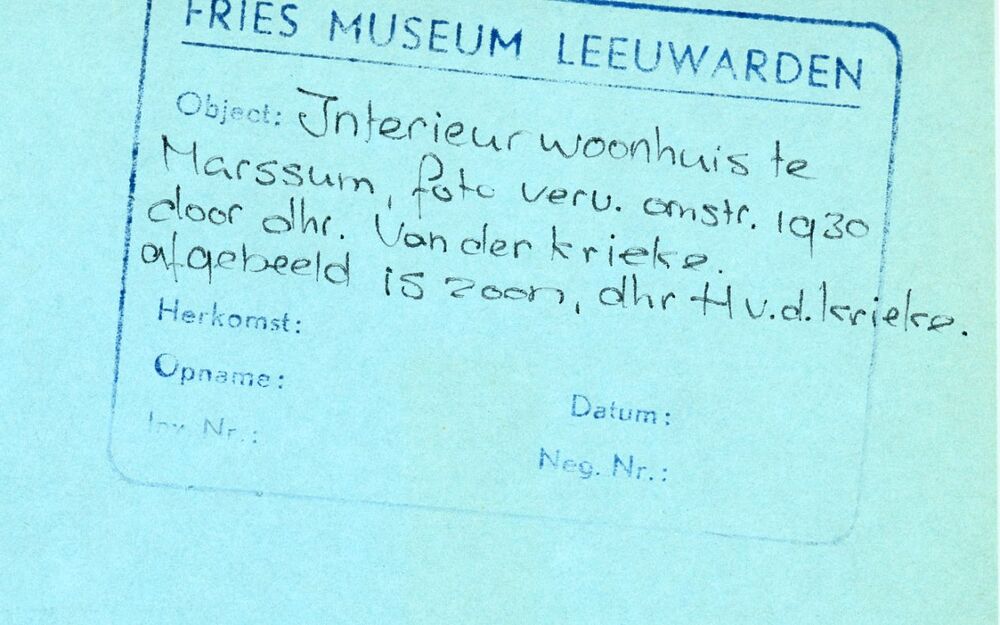 FRIES MUSEUM LEEUWARDEN
Object: Interieur woonhuis te
Marssum, foto verv. omstr. 1930
door dhr. Van der krieke.
afgebeeld is zoon, dhr H v.d. krieke.
Herkomst:
Opname:
Datum:
Inv. Nr.:
Neg. Nr.: